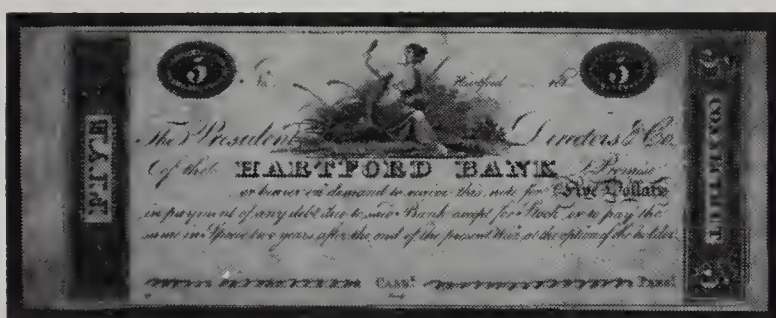 5 No. Hartford 18 5
The President Directors & Co.
of the HARTFORD BANK Promise
or bearer on demand to receive this note for Five Dollars
in payment of any debt due to said Bank except for Stock or to pay the
same in Specie two years after the end of the present War, at the option of the holder.
CASHR. PRESt.
FIVE
CONNECTICUT